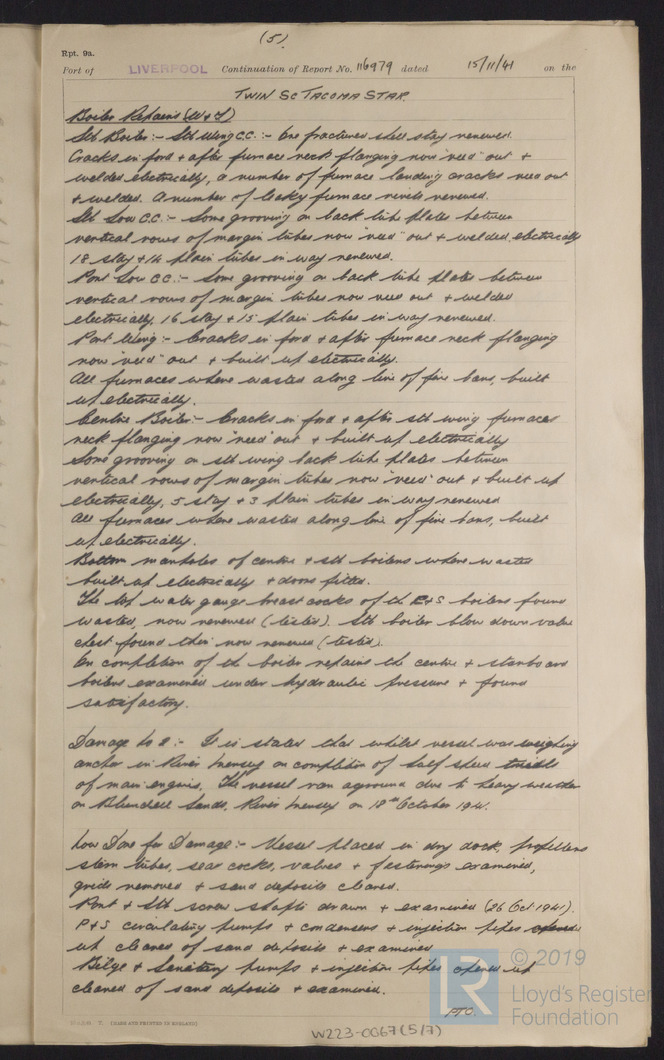 (5)
Rpt. 9a.
Port of LIVERPOOL Continuation of Report No. 116979 dated 15/11/41 on the
TWIN SC TACOMA STAR
Boiler Repairs (W & T)
Stb Boiler:- Stb Wing C.C. :- One fractured shell stay renewed.
Cracks in ford + after furnace neck flanging now "veed" out +
welded electrically, a number of furnace landing cracks veed out
+ welded. A number of leaky furnace rivets renewed.
Stb Low C.C.:- Some grooving on back tube plates between
vertical rows of margin tubes now "veed" out + welded electrically
18 stay + 14 plain tubes in way renewed.
Port Low C.C.:- Some grooving on back tube plates between
vertical rows of margin tubes now veed out + welded
electrically, 16 stay + 15 plain tubes in way renewed.
Port Wing:- Cracks in ford + after furnace neck flanging
now "veed" out + built up electrically.
All furnaces where wasted along line of fire bars, built
up electrically.
Centre Boiler:- Cracks in ford + after stb wing furnaces
neck flanging now "veed" out + built up electrically
Some grooving on stb wing back tube plates between
vertical rows of margin tubes now "veed" out + built up
electrically, 5 stay + 3 plain tubes in way renewed
All furnaces where wasted along line of fire bars, built
up electrically.
Bottom manholes of centre + stb boilers where wasted
built up electrically + doors fitted.
The top water gauge breast cocks of the P+S boilers found
wasted, now renewed (tested). Stb boiler blow down valve
chest found thin now renewed (tested).
On completion of the boiler repairs the centre + starboard
boilers examined under hydraulic pressure + found
satisfactory.
Damage to :- It is stated that whilst vessel was weighing
anchor in River Mersey on completion of half speed trials
of main engines. The vessel ran aground due to heavy weather
on Blundell Sands, River Mersey on 18th October 1941.
Now Done for Damage:- Vessel placed in dry dock, propellers
stern tubes, sea cocks, valves + fastenings examined,
grids removed + sand deposits cleared.
Port + Stb screw shafts drawn + examined (26 Oct 1941).
P+S circulating pumps + condensers + injection pipes opened
up cleaned of sand deposits + examined
Bilge + Sanitary pumps + injection pipes opened up
cleaned of sand deposits + examined.
PTO.
MADE AND PRINTED IN ENGLAND
W223-0067(5/7)
LR
© 2019
Lloyd's Register
Foundation